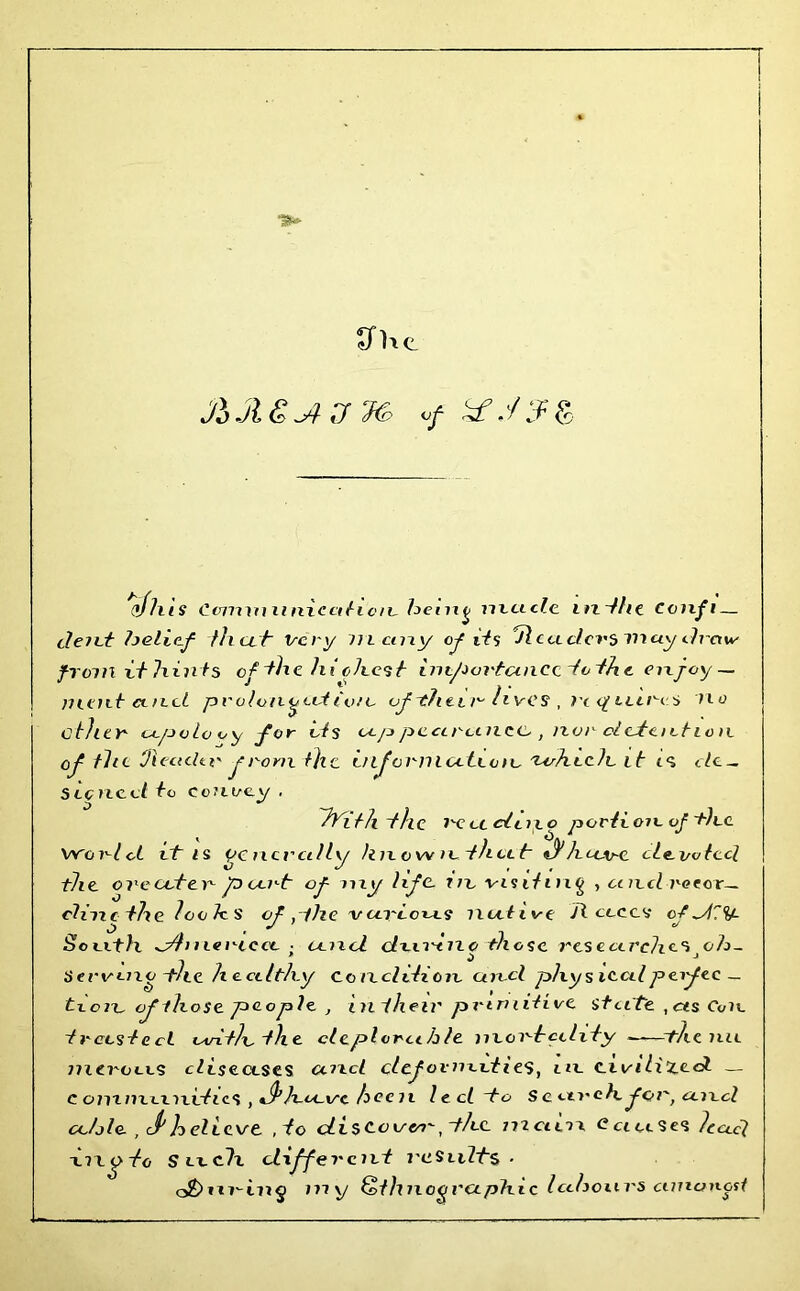 The
BREATH of LIFE
This Communication being made in the Confi—
dent belief that very many of its Readers may draw
from it hints of the highest importance to the enjoy—
ment and prolongation of their lives, requires no
other apology for its appearance, nor detention
of the Reader from the information which it is de—
signed to convey.
With the reading portion of the
World it is generally known that I have devoted
the greater part of my life in visiting, and recor—
ding the looks of, the various native Races of Nth. &
South America; and during those researches, ob—
serving the healthy condition and physical perfec—
tion of those people, in their primitive state, as Con
trasted with the deplorable mortality —the nu
merous diseases and deformities, in civilized —
communities, I have been led to search for, and
able, I believe, to discover, the main Causes lead
ing to such different results.
During my Ethnographic labours amongst